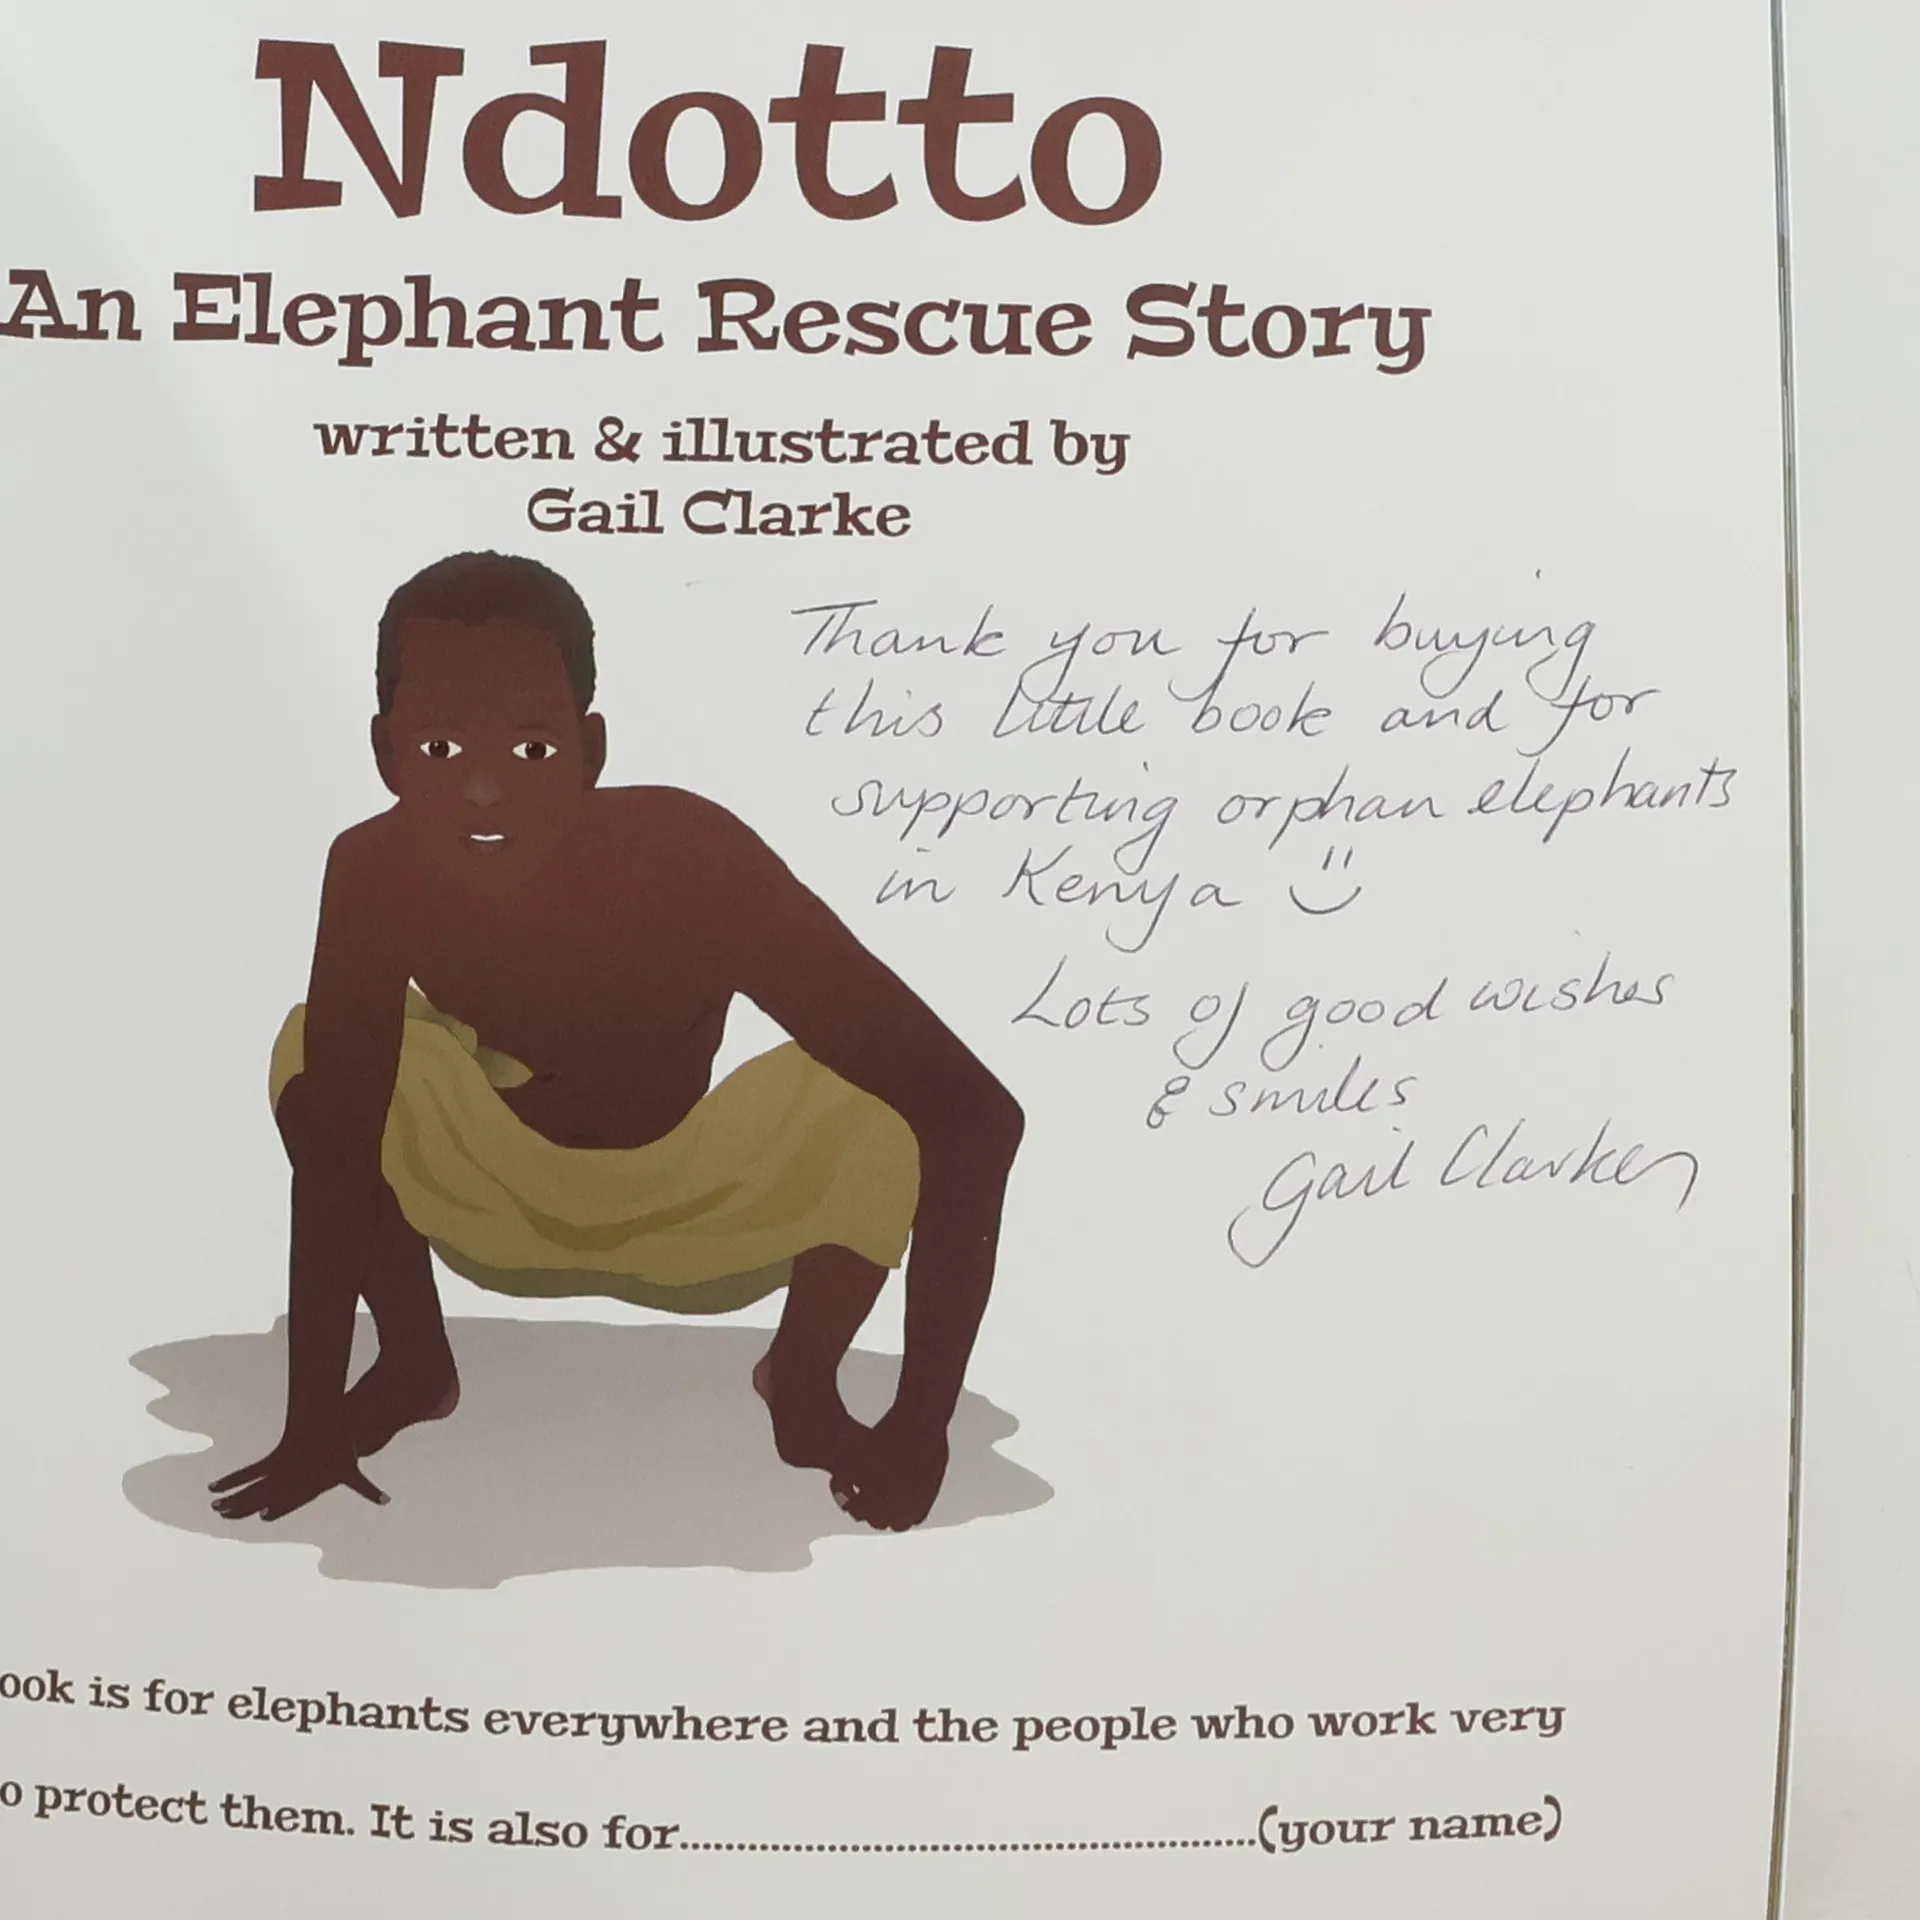 Ndotto
An Elephant Rescue Story
written & illustrated by
Gail Clarke
Thank you for buying
this little book and for
supporting orphan elephants
in Kenya
Lots of good wishes
& smiles
Gail Clarke
ook is for elephants everywhere and the people who work very
o protect them. It is also for..................................................(your name)